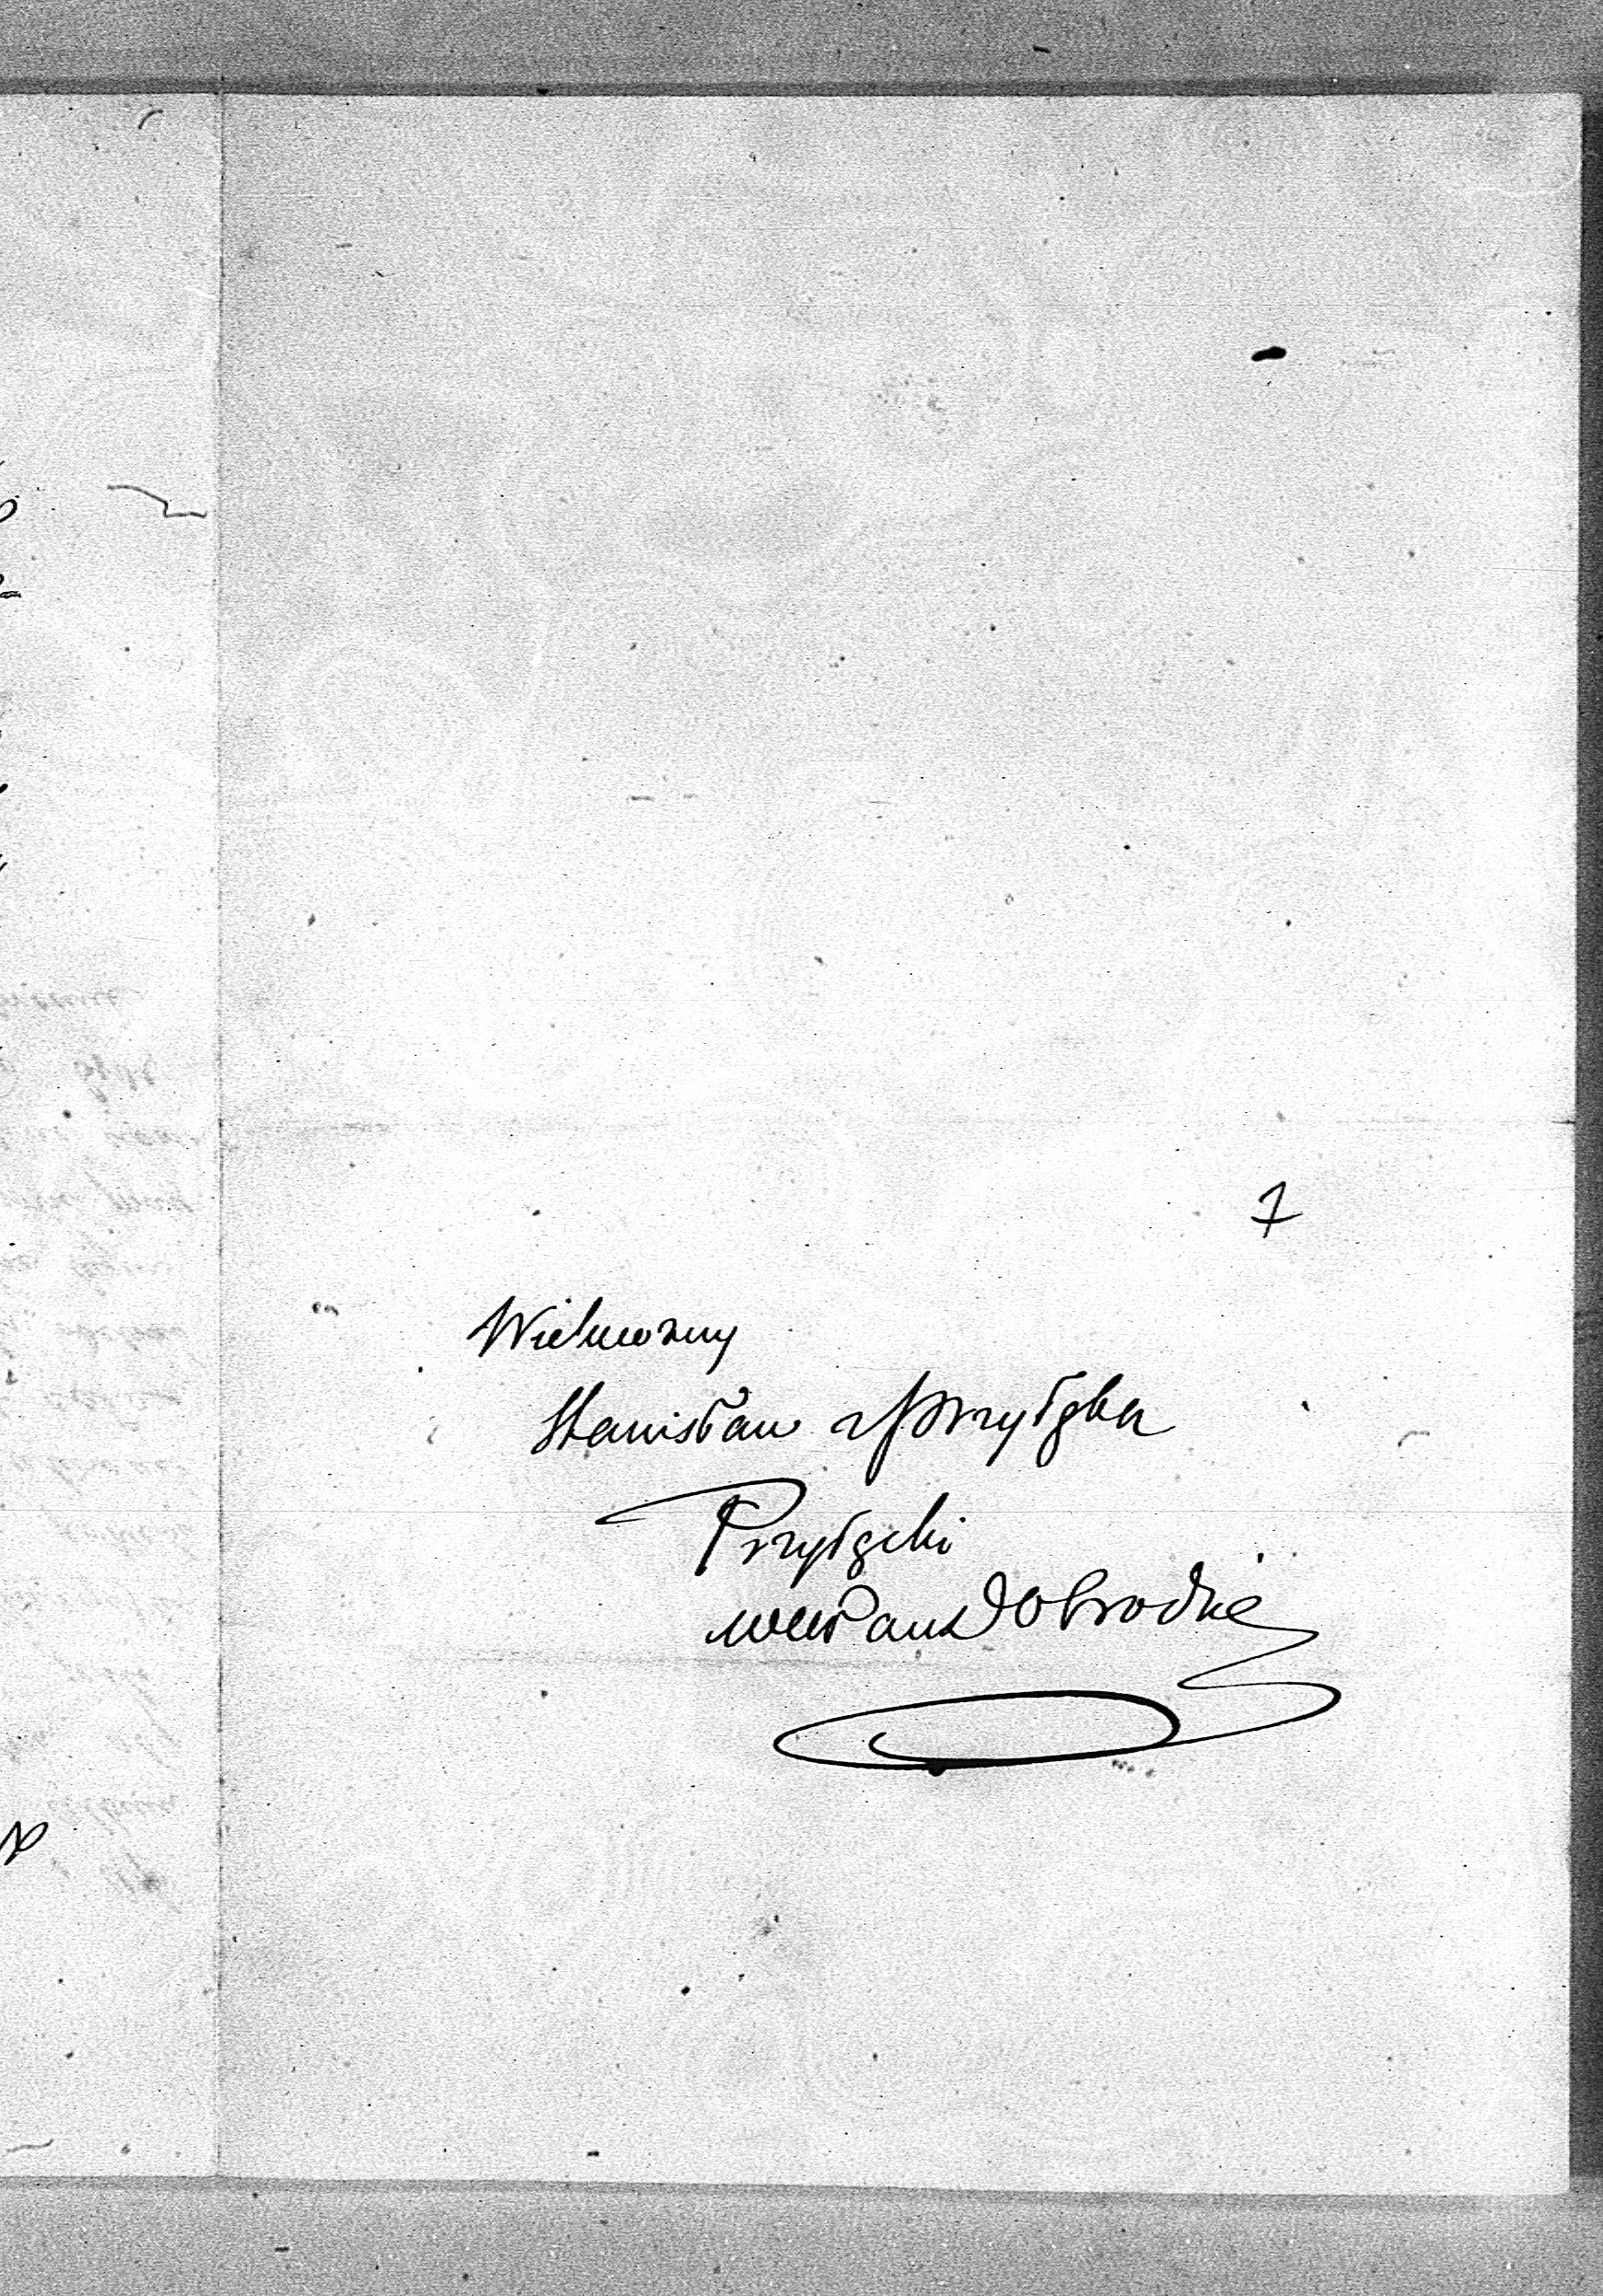 7
Wielmozny
Stanisław z Przyłęka
Przyłęcki
WM Pan Dobrodzie